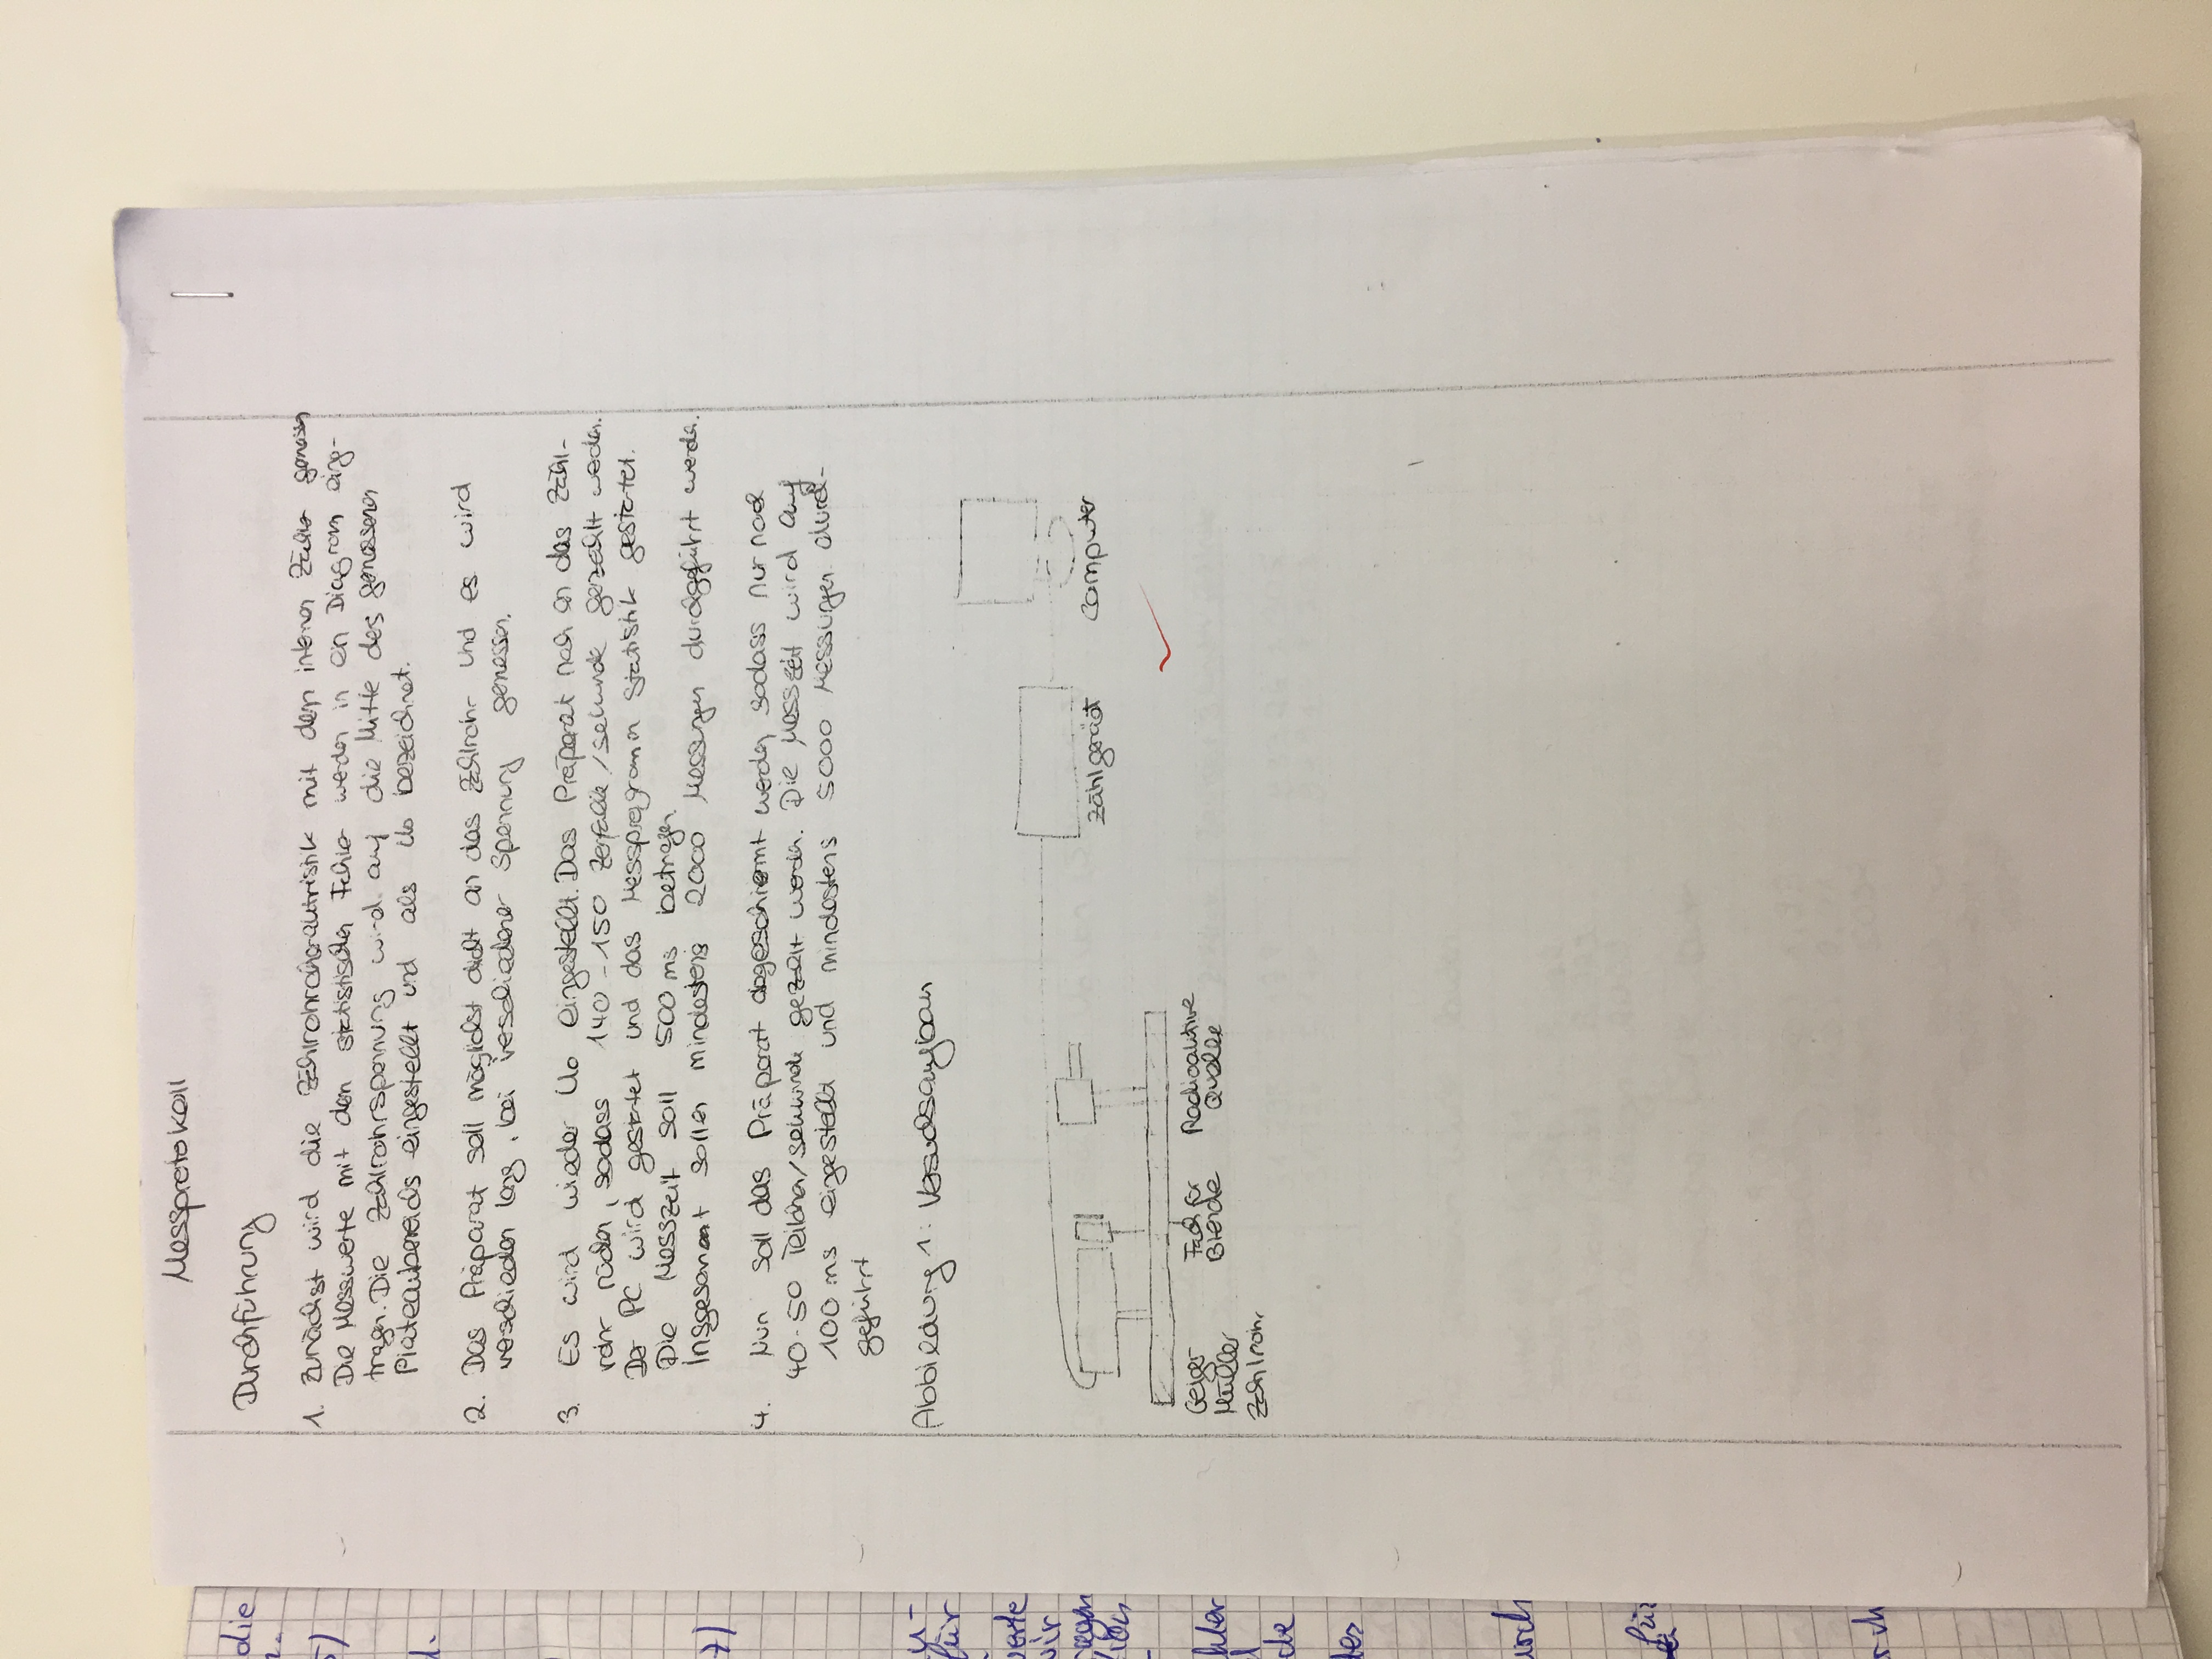 Messprotokoll
Durchführung
1. Zunächst wird die Zählrohrcharaktristik mit dem internen Zähler gemessen
Die Messwerte mit dem statistischen Fehler werden in ein Diagram einge-
tragen. Die Zählrohrspannung wird auf die Mitte des gemessenen
Plateaubereichs eingestellt und als U0 bezeichnet.
2. Das Präparat soll möglichst dicht an das Zählrohr und es wird
verschieden lang, bei verschiedener Spannung gemessen.
3. Es wird wieder U0 eingestellt. Das Präparat nah an das Zähl-
rohr rücken, sodass 140-150 Zerfälle/sekunde gezählt werden.
Der PC wird gestartet und das Messprogramm Statistik gestartet.
Die Messzeit soll 500 ms betragen.
Insgesamt sollen mindestens 2000 Messungen durchgeführt werden.
4. Nun soll das Präparat abgeschirmt werden sodass nur noch
40-50 Teilchen/sekunde gezählt werden. Die Messzeit wird auf
100 ms eingestellt und mindestens 5000 Messungen durch-
geführt
Abbildung 1: Versuchsaufbau
Zählgerät
Computer
Geiger
Müller
Zählrohr
Fach für
Blende
Radioaktive
Quelle
die
5)
7)
u-
für
werte
wir
hler
de
des
urch
für
rch